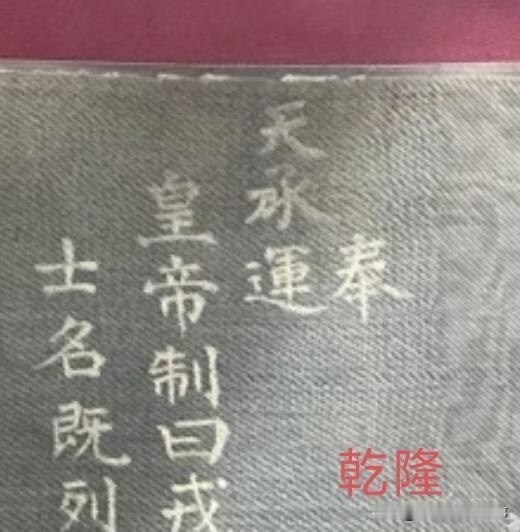 奉
天承運
皇帝制曰戎
士名既列
乾隆